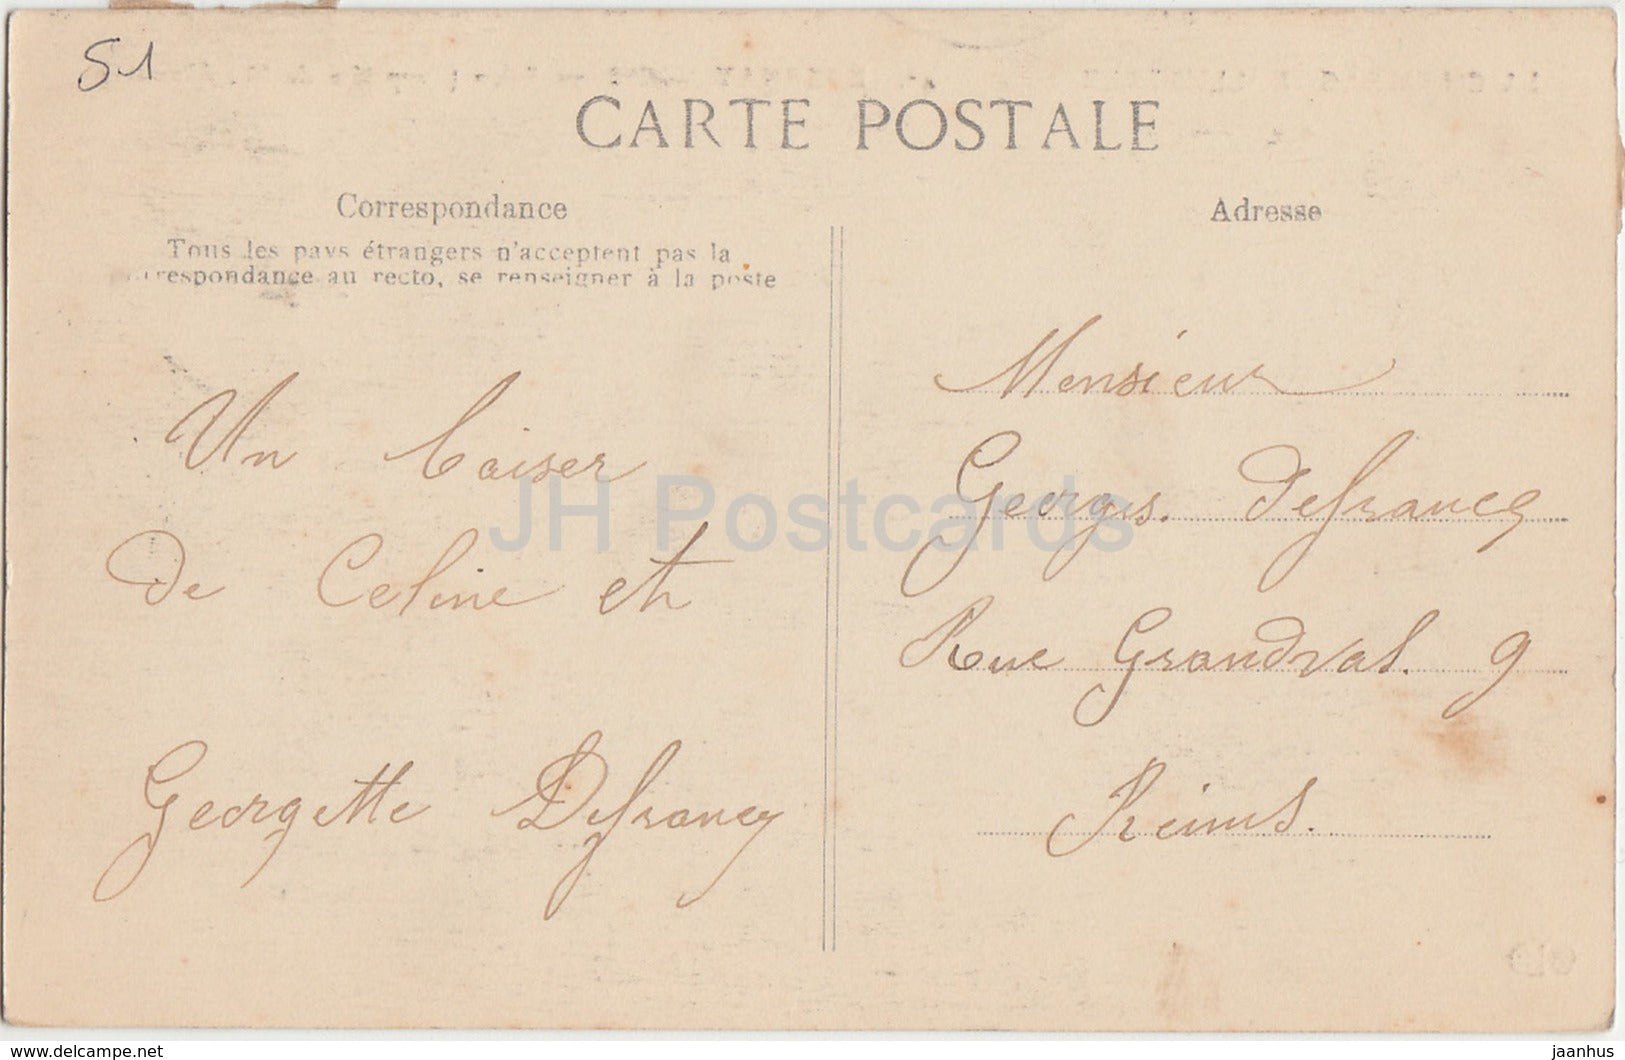 51
CARTE POSTALE
Correspondance
Tous les pays étrangers n'acceptent pas la
respondance au recto, se renseigner à la poste
Un baiser
De Celine et
Georgette Defrancq
Adresse
Monsieur
Georges. Defrancq
Rue Grandval. 9
Reims.
JH Postcards
hip-post.com
jaanhus